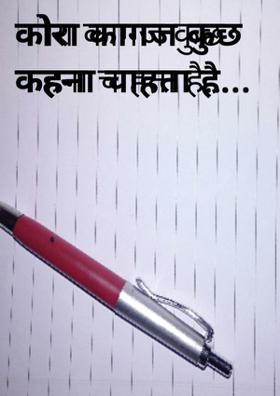 कोरा कागज कुछ
कहना चाहता है...